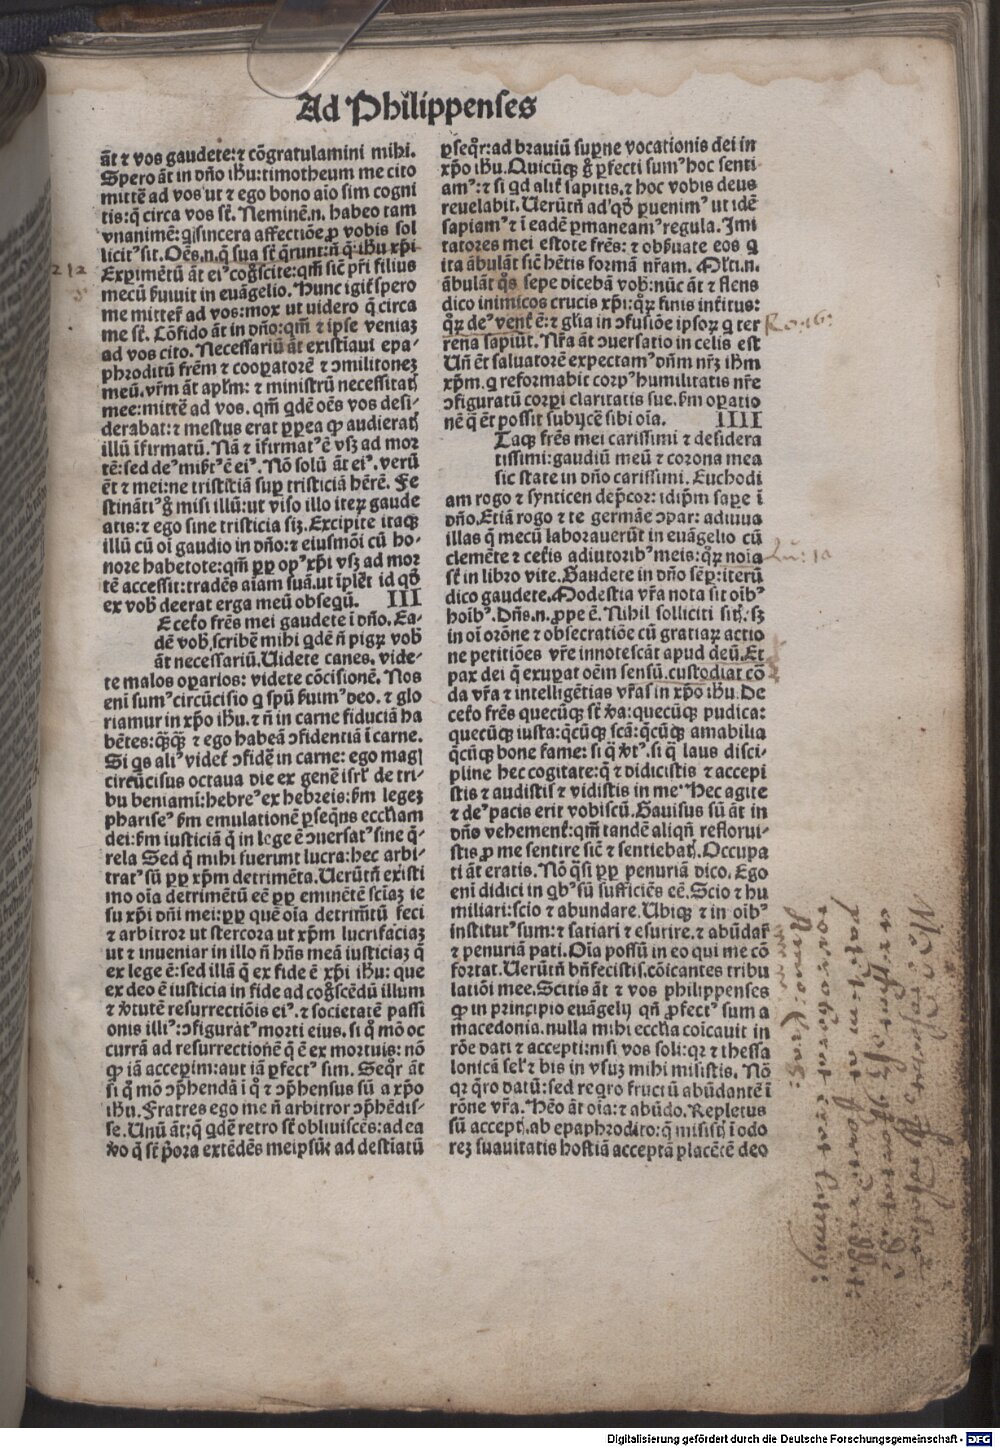 Ad Philippenses
āt ⁊ vos gaudete:⁊ cōgratulamini mihi.
Spero āt in dño ihu:timotheum me cito
mittē ad vos ut ⁊ ego bono aīo sim cogni
tis:q̄ circa vos st̄. Neminē.n. habeo tam
vnanimē: qͥ sincera affectiōe ꝓ vobis sol
licitꝰ sit. Oēs.n.q̄ sua st̄ q̄runt:ñ q̄ ihu xp̄i
Exꝑimētū āt eiꝰ coḡscite:qm̄ sic̄ pr̄i filius
mecū ẜuiuit in euāgelio. Hunc igit̄ spero
me mitter̄ ad vos:mox ut videro q̄ circa
me st̄. Cōfido āt in dño:qm̄ ⁊ ipse veniaꝫ
ad vos cito. Necessariū āt existiaui epa-
phroditū frēm ⁊ cooꝑatorē ⁊ ↄmilitoneꝫ
meū. vr̄m āt apl̄m: ⁊ ministrū necessitatꝭ
mee:mittē ad vos. qm̄ qͥdē oēs vos desi-
derabat:⁊ mestus erat ꝓpea ꝙ audieratꝭ
illū īfirmatū. Nā ⁊ īfirmatꝰ ē vsqꝫ ad mor
tē:sed deꝰ misẗꝰ ē eiꝰ. Nō solū āt eiꝰ. verū
ēt ⁊ mei:ne tristitiā suꝑ tristiciā hērē. Fe
stinātiꝰ g̊ misi illū:ut viso illo iteꝝ gaude
atis:⁊ ego sine tristicia siꝫ. Excipite itaqꝫ
illū cū oī gaudio in dño:⁊ eiusmōi cū ho-
nore habetote:qm̄ ꝓp opꝰ xp̄i vsqꝫ ad mor
tē accessit:tradēs aīam suā.ut īpler̄t id qđ
ex vob̄ deerat erga meū obseqū. III
E ceto frēs mei gaudete ī dño. Ea-
dē vob̄ scribē mihi qͥdē ñ pigꝝ vob̄
āt necessariū. Uidete canes. vide-
te malos oꝑarios: videte cōcisionē. Nos
enī sumꝰ circūcisio q̄ spū ẜuimꝰ deo. ⁊ glo
riamur in xp̄o ihu.⁊ ñ in carne fiduciā ha
bētes:qͣ̄qͣ̄ ⁊ ego habeā ↄfidentiā ī carne.
Si qͥs aliꝰ videt̄ ↄfidē in carne: ego magꝭ
circūcisus octaua die ex genē isrl̄ de tri-
bu beniamī:hebreꝰ ex hebreis:ẜm legeꝫ
phariseꝰ ẜm emulationē ꝑseqñs eccl̄iam
dei:ẜm iusticiā q̄ in lege ē ↄuersatꝰ sine q̄-
rela Sed q̄ mihi fuerunt lucra:hec arbi-
tratꝰ sū ꝓp xp̄m detrimēta. Uerūtñ existi
mo oīa detrimētū eē ꝓp eminētē sciaꝫ ie
su xp̄i dñi mei:ꝓp quē oīa detrim̄tū feci
⁊ arbitror ut stercora ut xp̄m lucrifaciaꝫ
ut ⁊ inueniar in illo ñ hñs meā iusticiaꝫ q̄
ex lege ē:sed illā q̄ ex fide ē xp̄i ihu: que
ex deo ē iusticia in fide ad coḡscēdū illum
⁊ v̓tutē resurrectiōis eiꝰ.⁊ societatē passi
onis illiꝰ:ↄfiguratꝰ morti eius. si q̄ mō oc
currā ad resurrectionē q̄ ē ex mortuis: nō
ꝙ iā acceꝑim:aut iā ꝑfectꝰ sim. Seqr̄ āt
si q̄ mō ↄp̄hendā ī q̄ ⁊ ↄp̄hensus sū a xp̄o
ihu. Fratres ego me ñ arbitror ↄp̄hēdis-
se. Unū āt:q̄ qͥdē retro st̄ obliuiscēs:ad ea
v̓o q̄ st̄ p̄ora extēdēs meipsū: ad destiatū
ꝑseqr̄:ad brauiū suꝑne vocationis dei in
xp̄o ihu. Quicūqꝫ g̊ ꝑfecti sumꝰ hoc senti
amꝰ:⁊ si qͥd alit̄ sapitis.⁊ hoc vobis deus
reuelabit. Uerūtñ adꝰ qđ ꝑuenimꝰ ut idē
sapiamꝰ ⁊ ī eadē ꝑmaneamꝰ regula. Imi
tatores mei estote frēs: ⁊ obẜuate eos q̄
ita ābulāt sic̄ hētis formā nr̄am. Ml̄ti.n.
ābulāt q̊s sepe dicebā vob̄:nūc āt ⁊ flens
dico inimicos crucis xp̄i:qꝝ finis intitus:
qꝝ deꝰ vent̄ ē:⁊ gl̄ia in ↄfusiōe ipsoꝝ q̄ ter
rena sapiūt. Nr̄a āt ↄuersatio in celis est
Uñ ēt saluatorē expectamꝰ dñm nr̄ꝫ ihm
xp̄m. q̄ reformabit corpꝰ humilitatis nr̄e
ↄfiguratū corpi claritatis sue.ẜm oꝑatio
nē q̄ ēt possit subijcē sibi oīa. IIII
Taqꝫ frēs mei carissimi ⁊ desidera
tissimi:gaudiū meū ⁊ corona mea
sic state in dño carissimi. Euchodi
am rogo ⁊ synticen dep̄cor: idip̄m sape ī
dño. Etiā rogo ⁊ te germāe ↄpar: adiuua
illas q̄ mecū laborauerūt in euāgelio cū
clemēte ⁊ cet̄is adiutoribꝰ meis:qꝝ noīa
st̄ in libro vite. Gaudete in dño sēꝑ:iterū
dico gaudete. Modestia vr̄a nota sit oībꝰ
hoībꝰ. Dñs.n. ꝓpe ē. Nihil solliciti sitꝭ: sꝫ
in oī orōne ⁊ obsecratiōe cū gratiaꝝ actio
ne petitiōes vr̄e innotescāt apud deū. Et
pax dei q̄ exuꝑat oēm sensū. custodiat cō
da vr̄a ⁊ intelligētias vr̄as in xp̄o ihu. De
ceto frēs quecūqꝫ st̄ v̓a:quecūqꝫ pudica:
quecūqꝫ iusta:q̄cūqꝫ scā:q̄cūqꝫ amabilia
q̄cūqꝫ bone fame: si q̄ v̓tꝰ.si q̄ laus disci-
pline hec cogitate:q̄ ⁊ didicistis ⁊ accepi
stis ⁊ audistis ⁊ vidistis in me. Hec agite
⁊ deꝰ pacis erit vobiscū. Gauisus sū āt in
dño vehement̄:qm̄ tandē aliqñ reflorui-
stis ꝓ me sentire sic̄ ⁊ sentiebatꝭ. Occupa
ti āt eratis. Nō q̄si ꝓp penuriā dico. Ego
enī didici in qͥbꝰ sū sufficiēs eē. Scio ⁊ hu
miliari:scio ⁊ abundare. Ubiqꝫ ⁊ in oībꝰ
institutꝰ sum:⁊ satiari ⁊ esurire.⁊ abūdar̄
⁊ penuriā pati. Oīa possū in eo qui me cō
fortat. Uerūtñ bñfecistis.cōicantes tribu
latiōi mee. Scitis āt ⁊ vos philippenses
ꝙ in principio euāgelij qñ ꝓfectꝰ sum a
macedonia.nulla mihi eccl̄ia coīcauit in
rōe dati ⁊ accepti:nisi vos soli:qꝛ ⁊ thessa
lonicā sel̄ ⁊ bis in vsuꝫ mihi misistis. Nō
qꝛ q̄ro datū:sed reqͥro fructū abūdantē ī
rōne vr̄a. Hēo āt oīa:⁊ abūdo. Repletus
sū acceptꝭ.ab epaphrodito:q̄ misistꝭ ī odo
reꝫ suauitatis hostiā acceptā placētē deo
Ro: 16:
Lu: 10
Digitalisierung gefördert durch die Deutsche Forschungsgemeinschaft - DFG